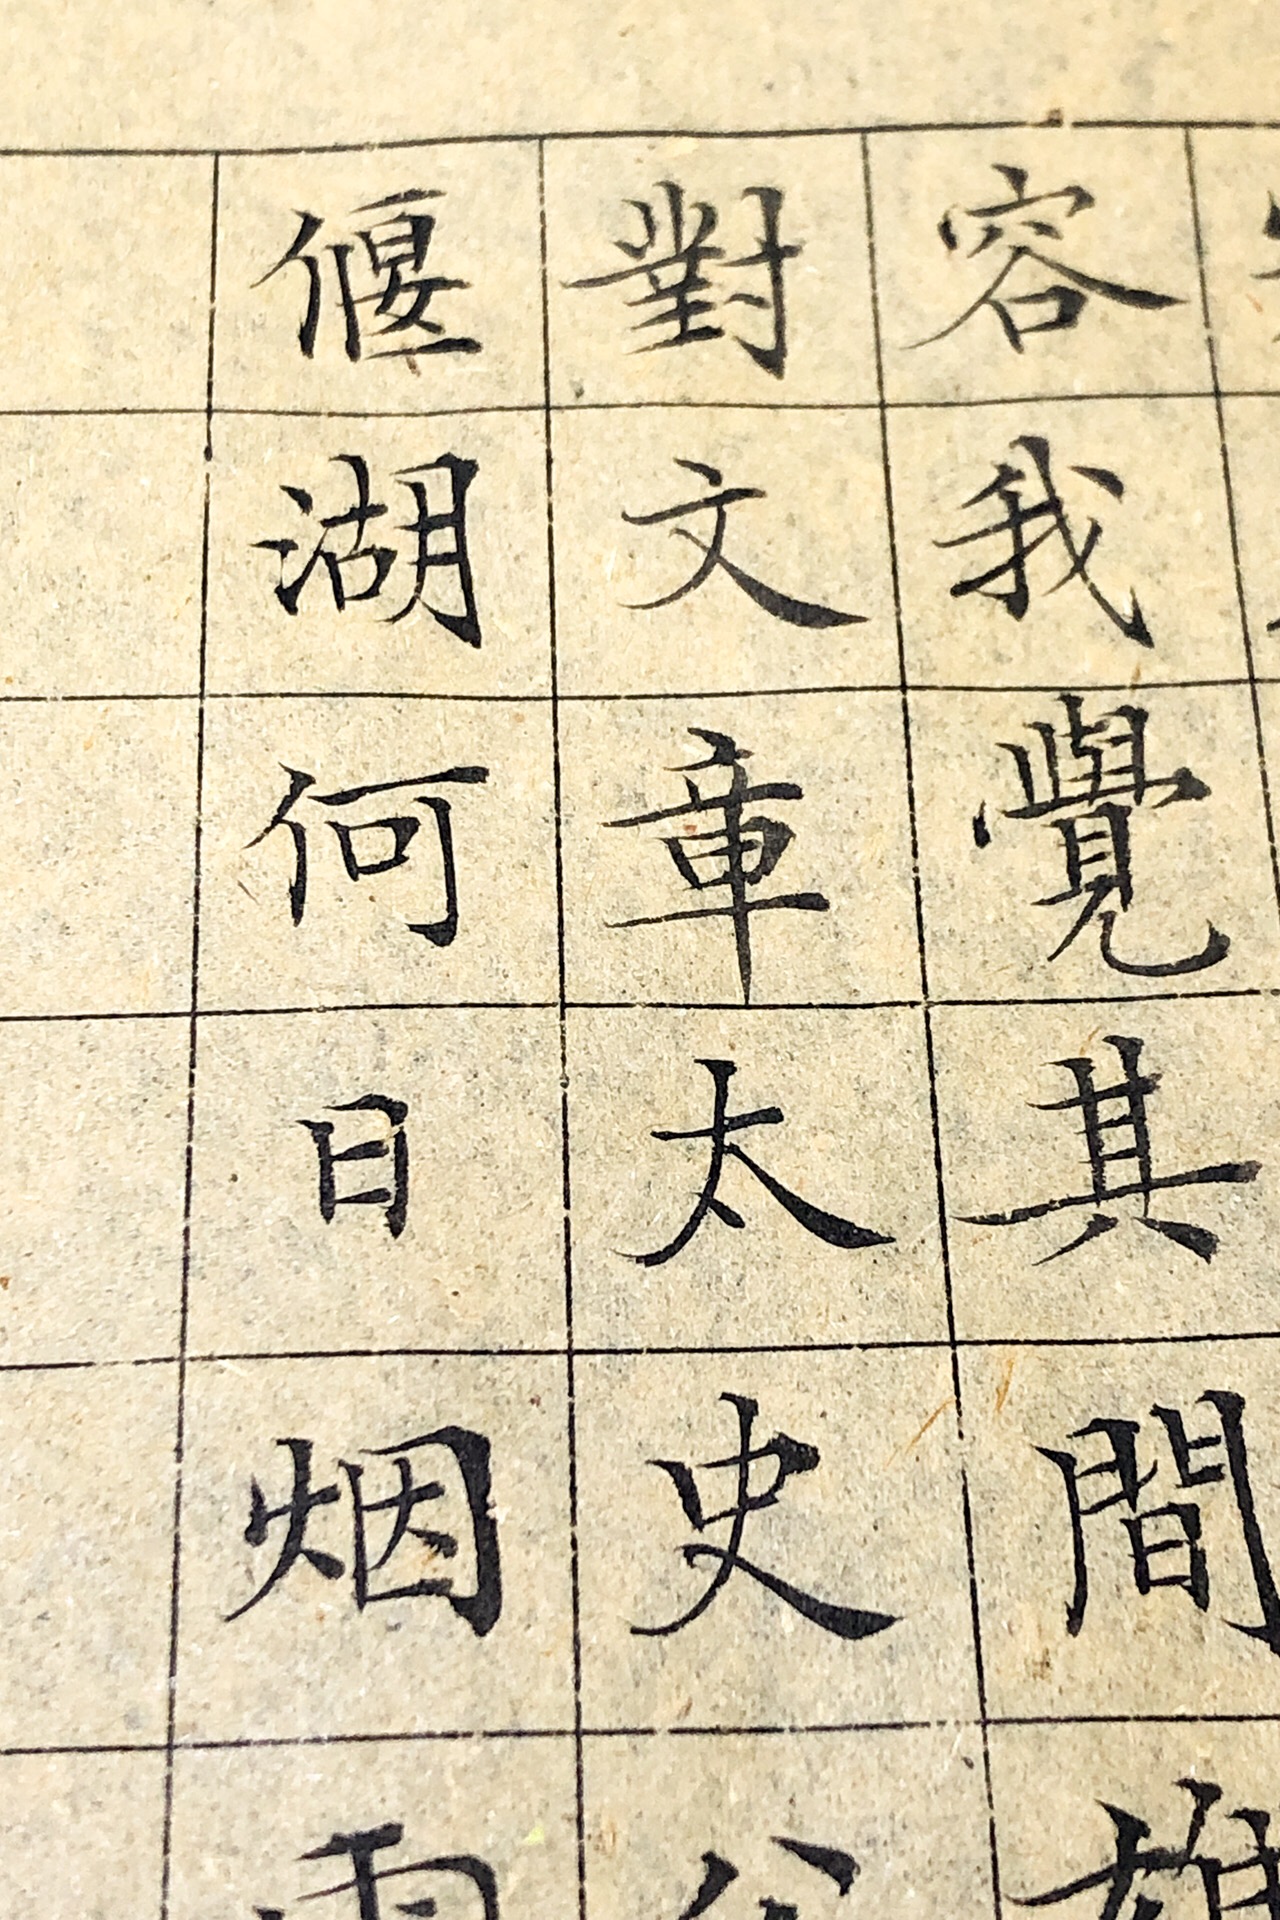 容我覺其間雄
對文章太史公
偃湖何日烟雨